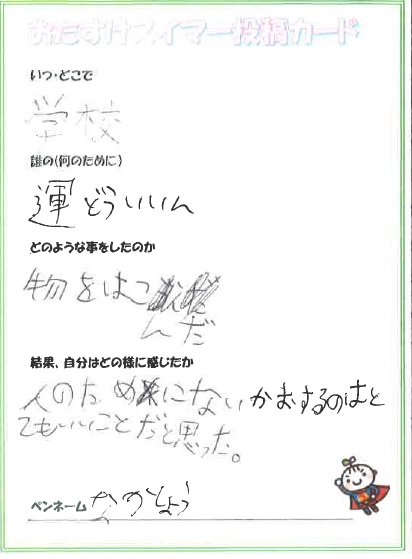 おたすけスイマー投稿カード
いつ・どこで
学校
誰の(何のために)
運どういいん
どのような事をしたのか
物をはこ
んだ
結果、自分はどの様に感じたか
人のためにないかおするのはと
てもいいことだと思った。
ペンネーム かのしょう